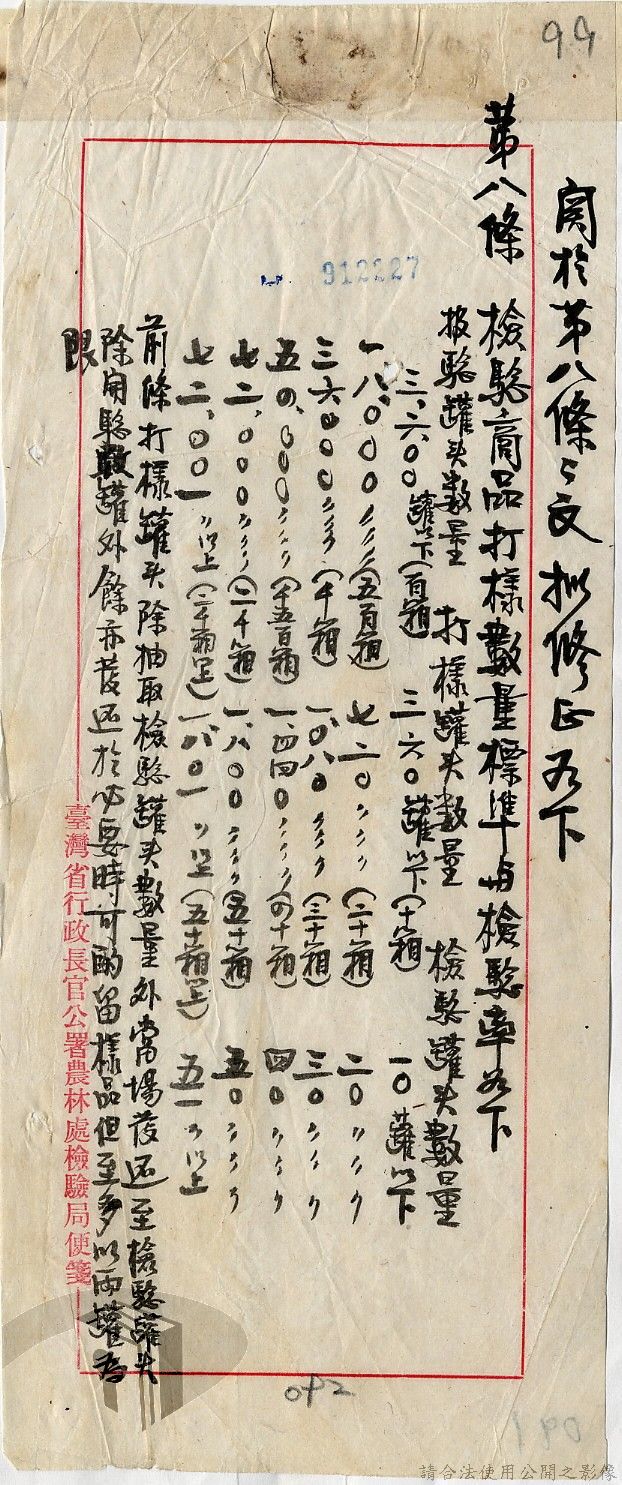 99
関於第八條々文拟修正如下
第八條 檢驗商品打樣數量標準与檢驗率如下
报驗罐头數量 打樣罐头數量 檢驗罐头數量
三、六00罐以下(百箱) 三六0罐以下(十箱) 一0罐以下
一八、000〃〃〃(五百箱) 七二0〃〃〃(二十箱) 二0〃〃〃
三六000〃〃〃(千箱) 一、0八0〃〃〃(三十箱) 三0〃〃〃
五四、000〃〃〃(千五百箱) 一、四四0〃〃〃(四十箱) 四0〃〃〃
七二、000〃〃〃(二千箱) 一、八00〃〃〃(五十箱) 五0〃〃〃
七二、00一〃以上(二千箱以上) 一、八0一〃以上(五十箱以上) 五一〃以上
前條打樣罐头除抽取檢驗罐头數量外當場發还至檢驗罐头
除開驗數罐外餘亦發还於必要時可酌留樣品但至多以兩罐為
限
912227
臺灣省行政長官公署農林處檢驗局便箋
042
190
請合法使用公開之影像